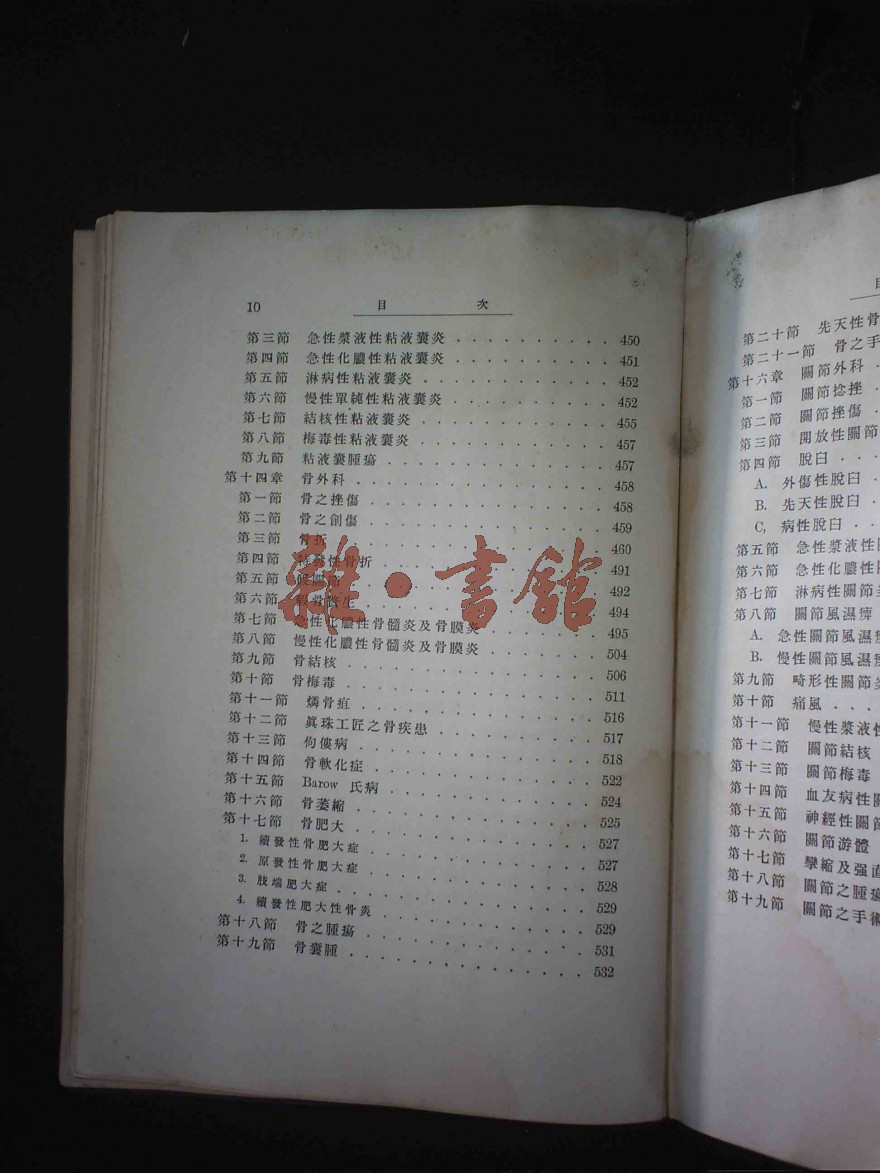 10 目 次
第三節 急性漿液性粘液囊炎 450
第四節 急性化膿性粘液囊炎 451
第五節 淋病性粘液囊炎 452
第六節 慢性單純性粘液囊炎 452
第七節 結核性粘液囊炎 455
第八節 梅毒性粘液囊炎 457
第九節 粘液囊腫瘍 457
第十四章 骨外科 458
第一節 骨之挫傷 458
第二節 骨之創傷 459
第三節 骨折 460
第四節 性骨折 491
第五節 492
第六節 生 494
第七節 急性化膿性骨髓炎及骨膜炎 495
第八節 慢性化膿性骨髓炎及骨膜炎 504
第九節 骨結核 506
第十節 骨梅毒 511
第十一節 燐骨疽 516
第十二節 眞珠工匠之骨疾患 517
第十三節 佝僂病 518
第十四節 骨軟化症 522
第十五節 Barow 氏病 524
第十六節 骨萎縮 525
第十七節 骨肥大 527
1. 續發性骨肥大症 527
2. 原發性骨肥大症 528
3. 肢端肥大症 529
4. 續發性肥大性骨炎 529
第十八節 骨之腫瘍 531
第十九節 骨囊腫 532
雜·書館
目
第二十節 先天性骨
第二十一節 骨之手
第十六章 關節外科
第一節 關節捻挫
第二節 關節挫傷
第三節 開放性關節
第四節 脫臼
A. 外傷性脫臼
B. 先天性脫臼
C. 病性脫臼
第五節 急性漿液性關
第六節 急性化膿性關
第七節 淋病性關節
第八節 關節風濕痹
A. 急性關節風濕
B. 慢性關節風濕
第九節 畸形性關節
第十節 痛風
第十一節 慢性漿液
第十二節 關節結核
第十三節 關節梅毒
第十四節 血友病性關
第十五節 神經性關節
第十六節 關節游體
第十七節 攣縮及强直
第十八節 關節之腫瘍
第十九節 關節之手術